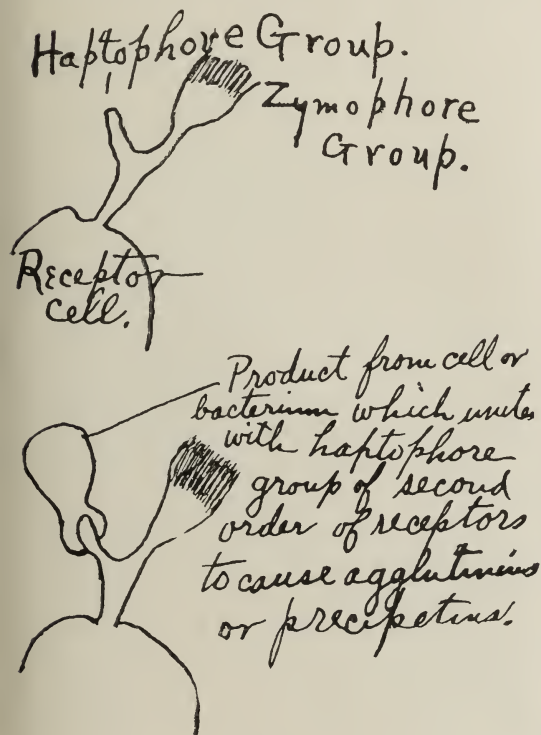 Haptophore Group.
Zymophore
Group.
Receptor
cell.
Product from cell or
bacterium which unites
with haptophore
group of second
order of receptors
to cause agglutinins
or precipetins.